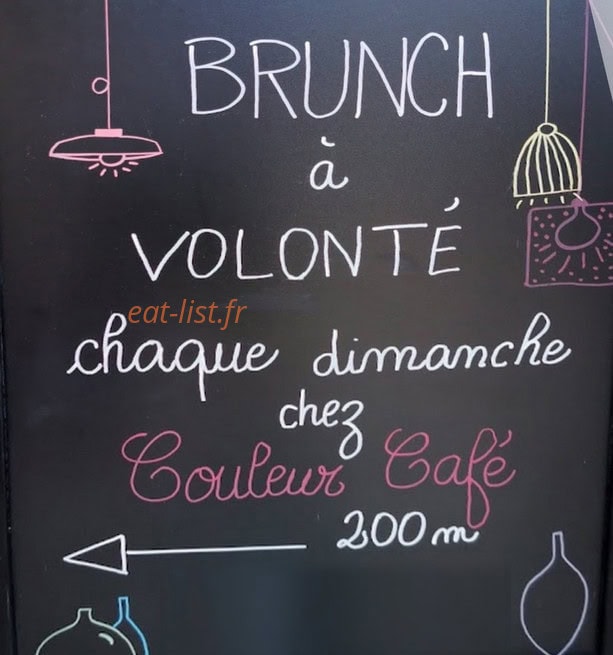 BRUNCH
à
VOLONTÉ
eat-list.fr
chaque dimanche
chez
Couleur Café
200 m